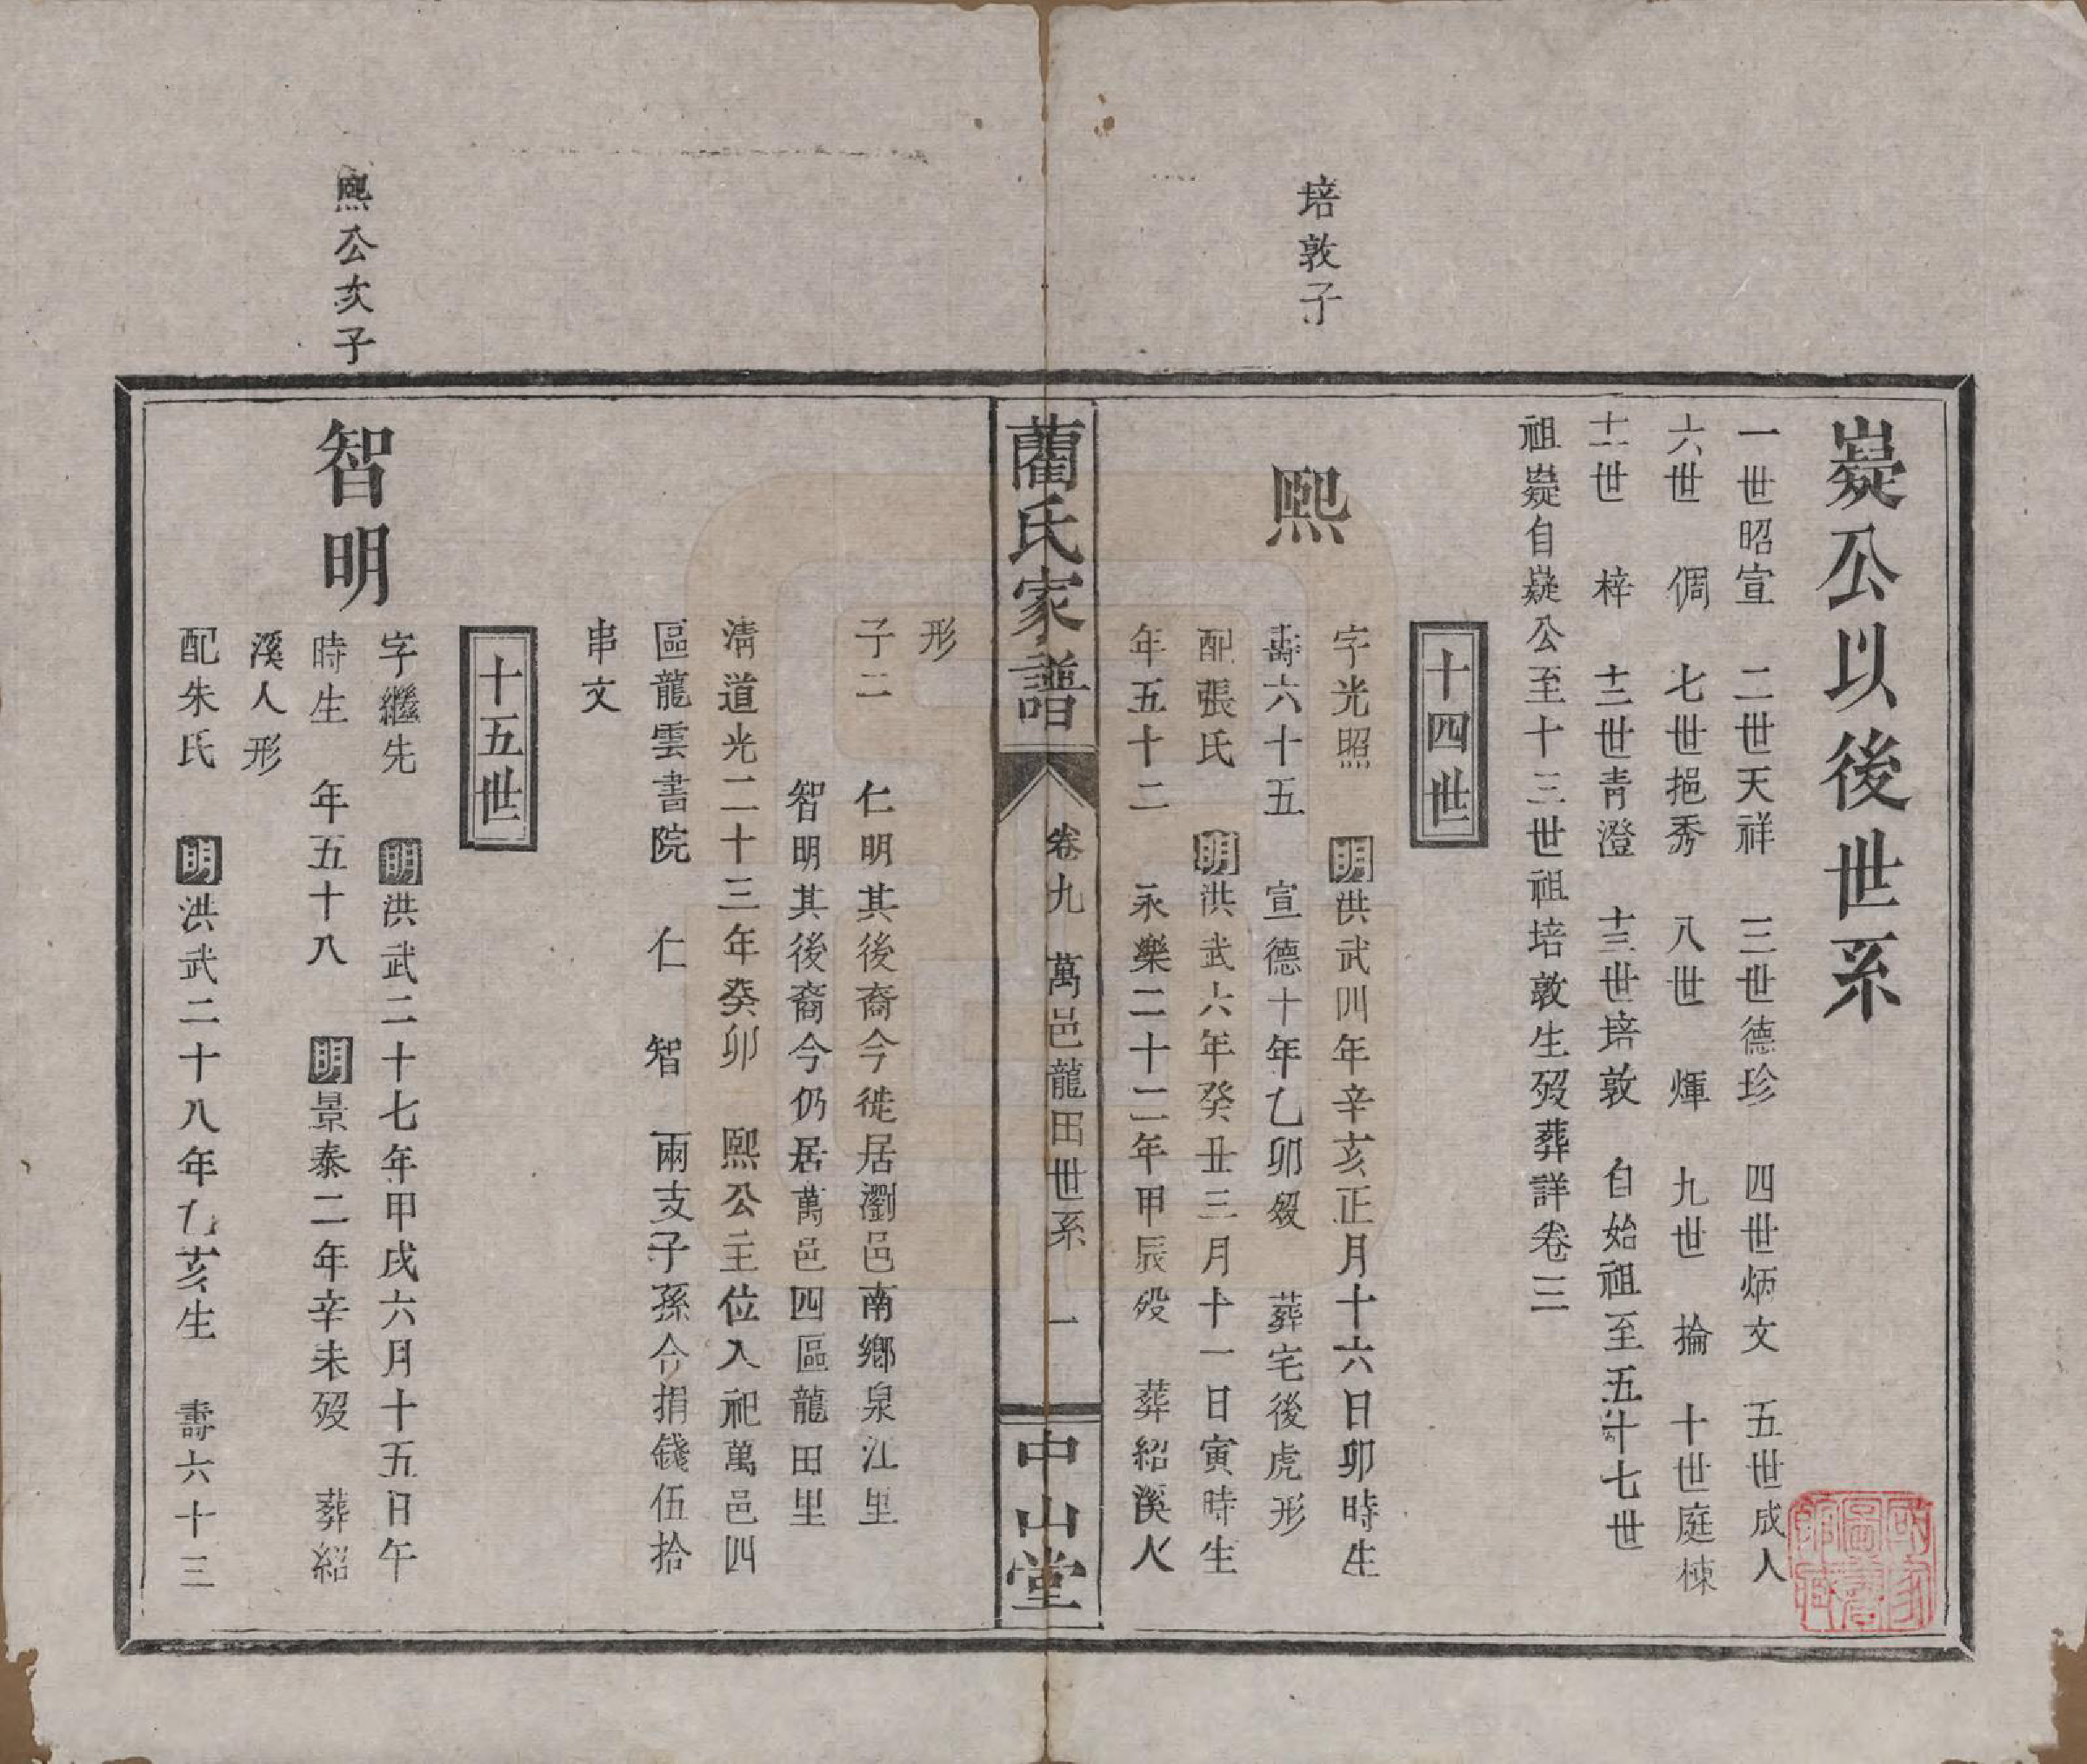 嶷公以後世系
一世昭宣 二世天祥 三世德珍 四世炳文 五世成人
六世 倜 七世挹秀 八世 煇 九世 掄 十世庭棟
十一世 梓 十二世青澄 十三世培敦 自始祖至五十七世
祖嶷自嶷公至十三世祖培敦生歿葬詳卷三
十四世
培敦子
熙
字光照 明洪武四年辛亥正月十六日卯時生
壽六十五 宣德十年乙卯歿 葬宅後虎形
配張氏 明洪武六年癸丑三月十一日寅時生
年五十二 永樂二十二年甲辰歿 葬紹溪人
藺氏家譜 卷九 萬邑龍田世系 一 中山堂
形
子二 仁明其後裔今徙居瀏邑南鄉泉江里
智明其後裔今仍居萬邑四區龍田里
清道光二十三年癸卯 熙公主位入祀萬邑四
區龍雲書院 仁 智 兩支子孫合捐錢伍拾
串文
十五世
熙公次子
智明
字繼先 明洪武二十七年甲戌六月十五日午
時生 年五十八 明景泰二年辛未歿 葬紹
溪人形
配朱氏 明洪武二十八年乙亥生 壽六十三